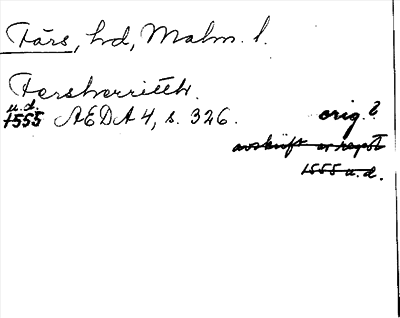 Färs, hd, Malm. l.
Fersherritth.
u.d.
1555 AEDA 4, s. 326.
orig?
avskrift av regest
1555 u.d.